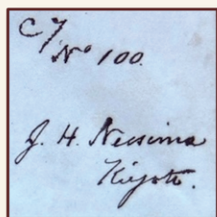 C7
No 100.
J. H. Neesima
Kiyoto.